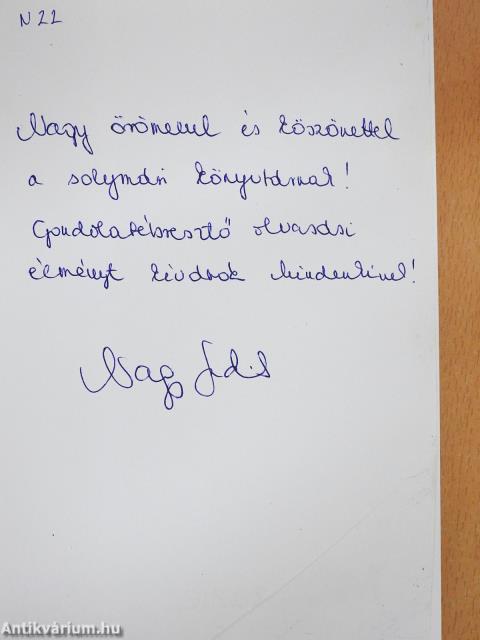 N 22
Nagy örömmel és köszönettel
a solymári könyvtárnak!
Gondolatébresztő olvasási
élményt kívánok Mindenkinek!
Nagy
Antikvárium.hu